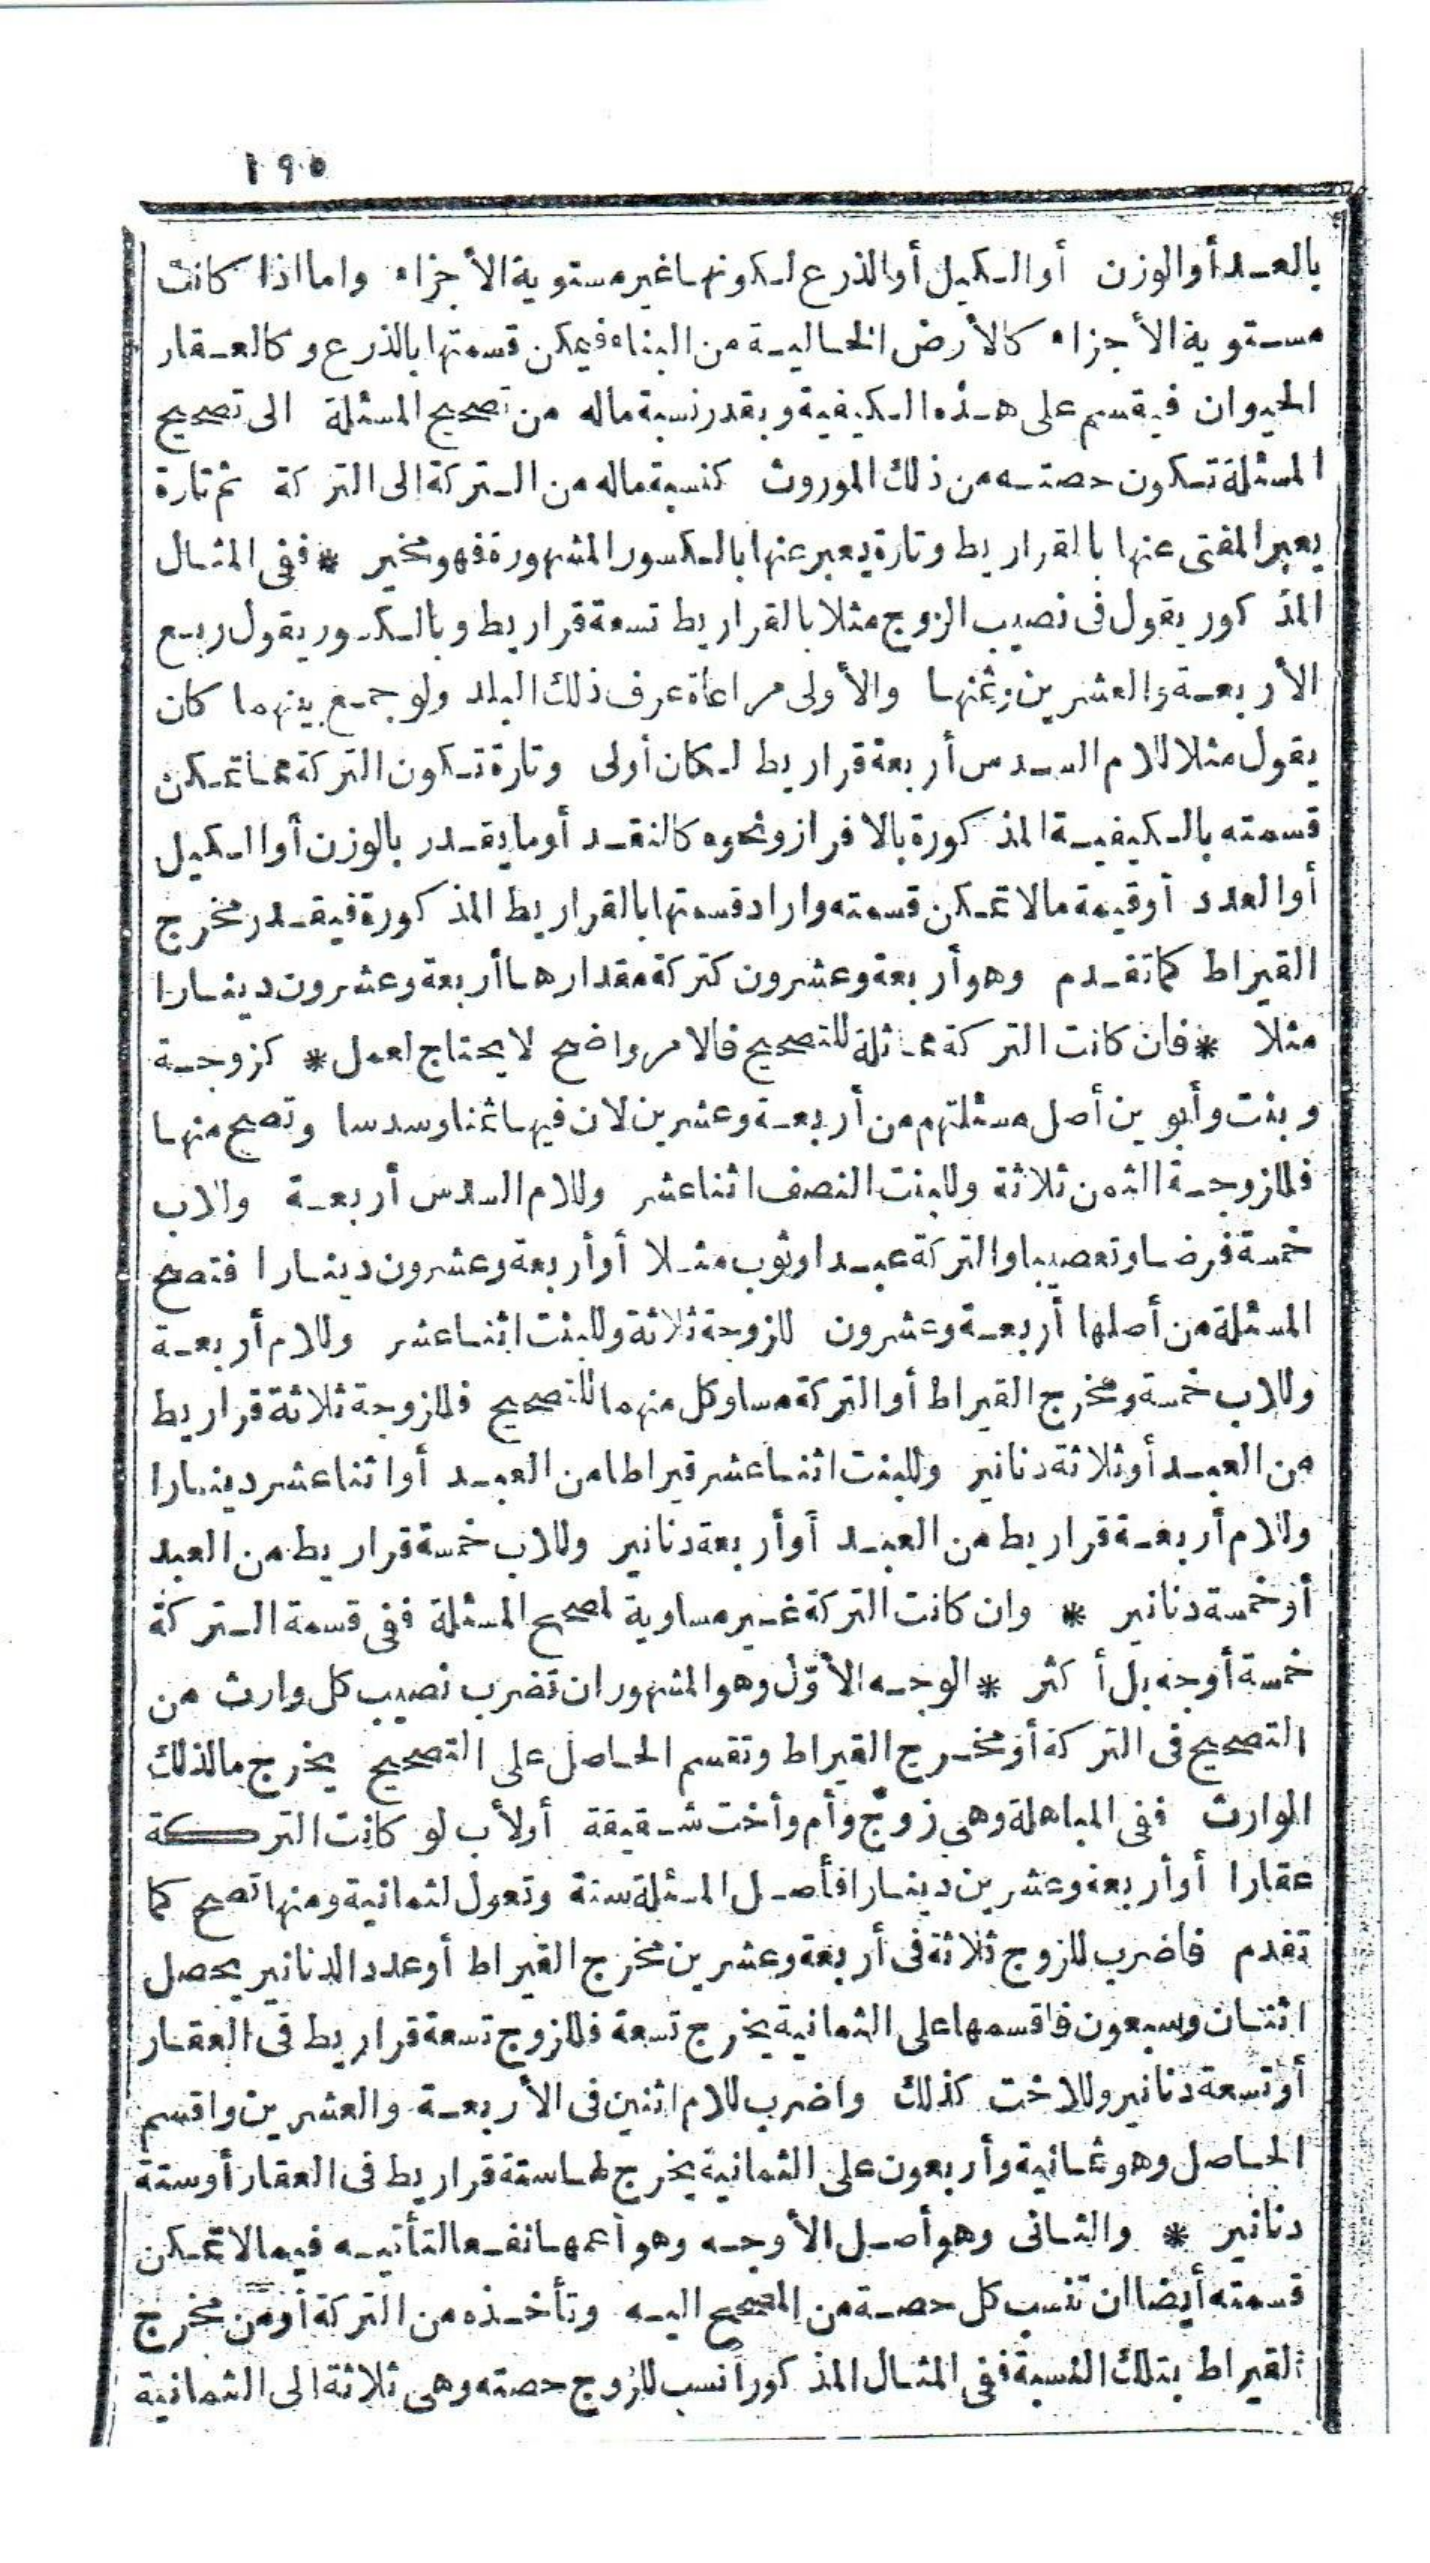 ١٩٥
بالعدد أو الوزن أو الكيل أو الذرع لكونها غير مستوية الأجزاء واما اذا كانت
مستوية الأجزاء كالأرض الخالية من البناء فيمكن قسمتها بالذرع وكالعقار
الحيوان فيقسم على هذه الكيفية وبقدر نسبة ماله من تصحيح المسئلة الى تصحيح
المسئلة تكون حصته من ذلك الموروث كنسبة ماله من التركة الى التركة ثم تارة
يعبر المفتى عنها بالقراريط وتارة يعبر عنها بالكسور المشهورة فهو مخير * ففى المثال
المذكور يقول فى نصيب الزوج مثلا بالقراريط تسعة قراريط وبالكسور يقول ربع
الأربعة والعشرين وثمنها والأولى مراعاة عرف ذلك البلد ولو جمع بينهما كان
يقول مثلا للام السدس أربعة قراريط لكان أولى وتارة تكون التركة مما تمكن
قسمته بالكيفية المذكورة بالافراز ونحوه كالنقد أو ما يقدر بالوزن أو الكيل
أو العدد أو قيمة مالا تمكن قسمته واراد قسمتها بالقراريط المذكورة فيقدر مخرج
القيراط كما تقدم وهو أربعة وعشرون كتركة مقدارها أربعة وعشرون دينارا
مثلا * فان كانت التركة مماثلة للتصحيح فالامر واضح لا يحتاج لعمل * كزوجة
وبنت وأبوين أصل مسئلتهم من أربعة وعشرين لان فيها ثمنا وسدسا وتصح منها
فللزوجة الثمن ثلاثة وللبنت النصف اثنا عشر وللام السدس أربعة وللاب
خمسة فرضا وتعصيبا والتركة عبد او ثوب مثلا أو أربعة وعشرون دينارا فتصح
المسئلة من أصلها أربعة وعشرون للزوجة ثلاثة وللبنت اثنا عشر وللام أربعة
وللاب خمسة ومخرج القيراط أو التركة مساو كل منهما للتصحيح فللزوجة ثلاثة قراريط
من العبد أو ثلاثة دنانير وللبنت اثنا عشر قيراطا من العبد أو اثنا عشر دينارا
وللام أربعة قراريط من العبد أو أربعة دنانير وللاب خمسة قراريط من العبد
أو خمسة دنانير * وان كانت التركة غير مساوية لمصحح المسئلة ففى قسمة التركة
خمسة أوجه بل أكثر * الوجه الأوّل وهو المشهور ان تضرب نصيب كل وارث من
التصحيح فى التركة أو مخرج القيراط وتقسم الحاصل على التصحيح يخرج ما لذلك
الوارث ففى المباهلة وهى زوج وأم وأخت شقيقة أولأب لو كانت التركة
عقارا أو أربعة وعشرين دينارا فأصل المسئلة ستة وتعول لثمانية ومنها تصح كما
تقدم فاضرب للزوج ثلاثة فى أربعة وعشرين مخرج القيراط أو عدد الدنانير يحصل
اثنان وسبعون فاقسمها على الثمانية يخرج تسعة فللزوج تسعة قراريط فى العقار
أو تسعة دنانير وللاخت كذلك واضرب للام اثنين فى الأربعة والعشرين واقسم
الحاصل وهو ثمانية وأربعون على الثمانية يخرج لها ستة قراريط فى العقار أو ستة
دنانير * والثانى وهو أصل الأوجه وهو أعمها نفعا لتأتيه فيما لا تمكن
قسمته أيضا ان تنسب كل حصة من المصحح اليه وتأخذه من التركة أو من مخرج
القيراط بتلك النسبة ففى المثال المذكور انسب للزوج حصته وهى ثلاثة الى الثمانية